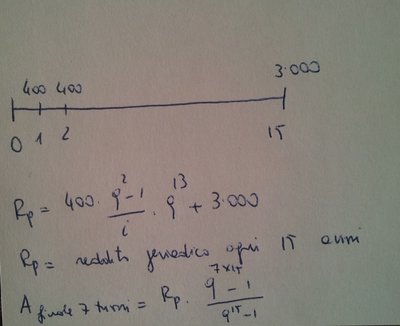 400 400 3.000
0 1 2 15
Rp = 400 · q² - 1 / i · q¹³ + 3.000
Rp = reddito periodico ogni 15 anni
A finale 7 turni = Rp · q⁷ˣ¹⁵ - 1 / q¹⁵ - 1